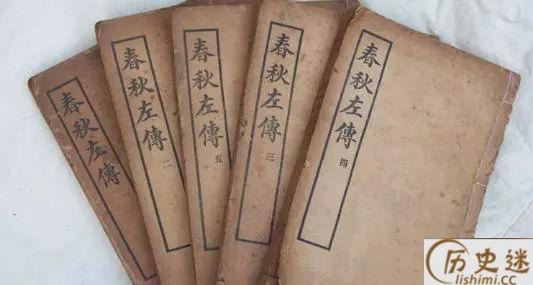 春秋左傳
春秋左傳 二
春秋左傳 五
春秋左傳 三
春秋左傳 四
历史迷
lishimi.CC